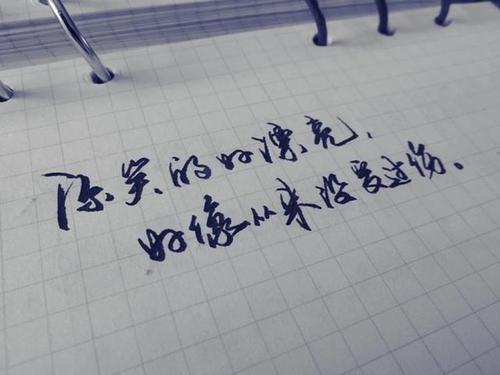 你笑的好漂亮,
好像从来没受过伤。